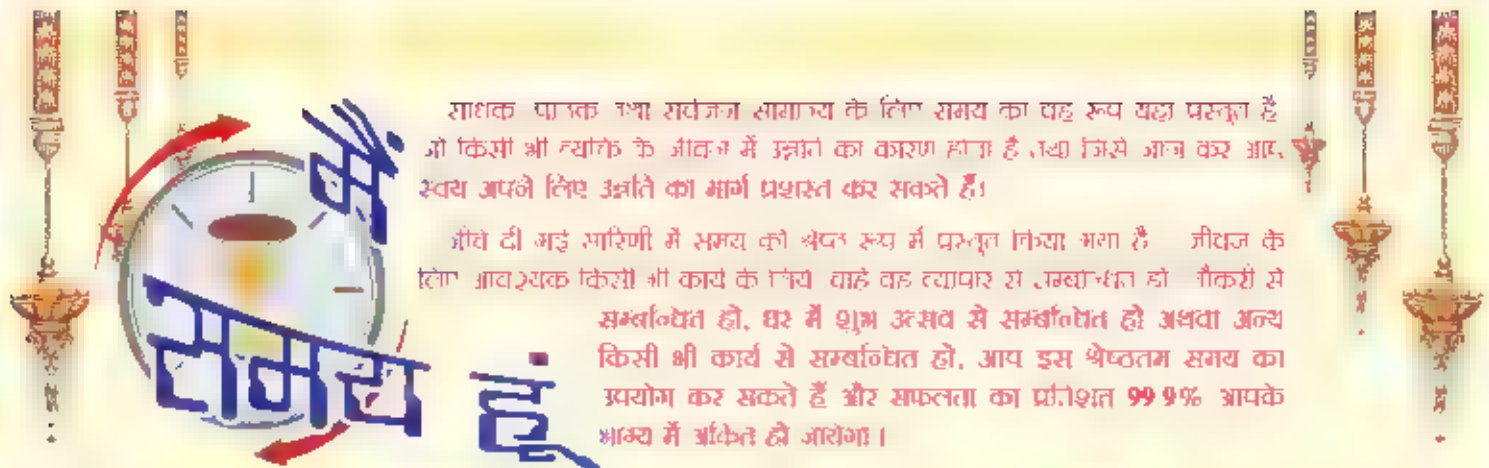 मैं
समय हूं
साधक पाठक तथा सर्वजन सामान्य के लिए समय का वह रूप यहां प्रस्तुत है
जो किसी भी व्यक्ति के जीवन में उन्नति का कारण होता है तथा जिसे जान कर आप
स्वयं अपने लिए उन्नति का मार्ग प्रशस्त कर सकते हैं।
नीचे दी गई सारिणी में समय को श्रेष्ठ रूप में प्रस्तुत किया गया है जीवन के
लिए आवश्यक किसी भी कार्य के लिये चाहे वह व्यापार से सम्बन्धित हो नौकरी से
सम्बन्धित हो, घर में शुभ उत्सव से सम्बन्धित हो अथवा अन्य
किसी भी कार्य से सम्बन्धित हो, आप इस श्रेष्ठतम समय का
उपयोग कर सकते हैं और सफलता का प्रतिशत 99 9% आपके
भाग्य में अंकित हो जायेगा।